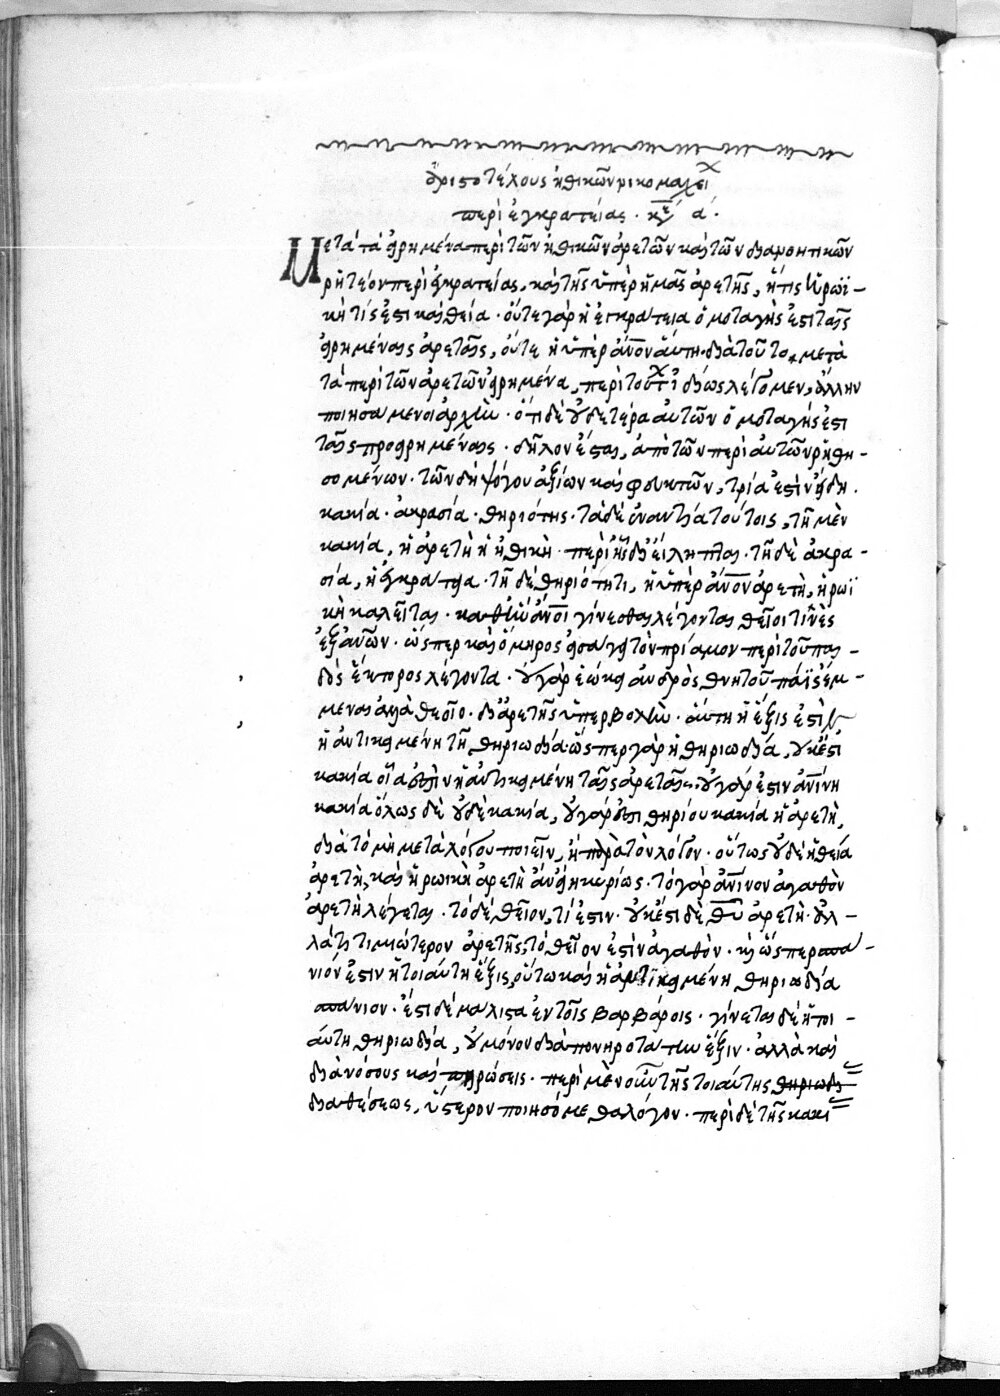 ἀριστοτέλους ἠθικῶν νικομαχεί
περὶ ἐγκρατείας · κε α΄·
Μετὰ τὰ εἰρημένα περὶ τῶν ἠθικῶν ἀρετῶν καὶ τῶν διανοητικῶν
ῥητέον περὶ ἐγκρατείας, καὶ τῆς ὑπὲρ ἡμᾶς ἀρετῆς, ἥτις ἡρωϊ-
κή τίς ἐστι καὶ θεία · οὔτε γὰρ ἡ ἐγκράτεια ὁμοταγής ἐστι ταῖς
εἰρημέναις ἀρεταῖς, οὔτε ἡ ὑπὲρ ἄνον αὕτη· διὰ τοῦτο μετὰ
τὰ περὶ τῶν ἀρετῶν εἰρημένα, περὶ τούτ ἰδίως λέγομεν, ἄλλην
ποιησάμενοι ἀρχὴν · ὅτι δὲ οὐδετέρα αὐτῶν ὁμοταγής ἐστι
ταῖς προειρημέναις · δῆλον ἔσται, ἀπὸ τῶν περὶ αὐτῶν ῥηθη-
σομένων · τῶν δὴ ψόγου ἀξίων καὶ φευκτῶν, τρία ἐστὶν εἴδη ·
κακία · ἀκρασία · θηριότης · τὰ δὲ ἐναντία τούτοις, τῇ μὲν
κακία, ἡ ἀρετὴ ἡ ἠθικὴ · περὶ ἧς ἤδη εἴληπται · τῇ δὲ ἀκρα-
σία, ἡ ἐγκράτεια · τῇ δὲ θηριότητι, ἡ ὑπὲρ ἄνον ἀρετὴ, ἡρωϊ
κὴ καλεῖται · καθ' ἣν ἄνοι γίνεσθαι λέγονται θεῖοι τινὲς
ἐξ ἀνῶν · ὥσπερ καὶ ὅμηρος εἰσάγει τὸν πρίαμον περὶ τοῦ παι-
δὸς ἕκτορος λέγοντα · οὐ γὰρ ἐώκει ἀνδρὸς θνητοῦ πάϊς ἔμ-
μεναι ἀλλὰ θεοῖο · δι' ἀρετῆς ὑπερβολὴν · αὕτη ἡ ἕξις ἐστὶν
ἡ ἀντικειμένη τῇ θηριωδία· ὥσπερ γὰρ ἡ θηριωδία, οὐκ ἔστι
κακία οἵα ἐστὶν ἡ ἀντικειμένη ταῖς ἀρεταῖς· οὐ γάρ ἐστιν ἀνίνη
κακία ὅλως δὲ οὐδὲ κακία, οὐ γάρ ἐστι θηρίου κακία ἢ ἀρετὴ,
διὰ τὸ μὴ μετὰ λόγου ποιεῖν, ἢ παρὰ τὸν λόγον · οὕτως οὐδὲ ἡ θεία
ἀρετὴ, καὶ ἡρωικὴ ἀρετὴ ἂν εἴη κυρίως · τὸ γὰρ ἀνίνον ἀγαθὸν
ἀρετὴ λέγεται · τὸ δὲ θεῖον, τί ἐστιν · οὐκ ἔστι δὲ θῦ ἀρετὴ · ἀλ-
λά τι τιμιώτερον ἀρετῆς, τὸ θεῖον ἐστὶν ἀγαθὸν · καὶ ὥσπερ σπα-
νιόν ἐστιν ἡ τοιαύτη ἕξις, οὕτω καὶ ἡ ἀντικειμένη θηριωδία
σπάνιον · ἔστι δὲ μάλιστα ἐν τοῖς βαρβάροις · γίνεται δὲ ἡ τοι-
αύτη θηριωδία, οὐ μόνον διὰ πονηροτάτην ἕξιν · ἀλλὰ καὶ
διὰ νόσους καὶ πηρώσεις · περὶ μὲν οὖν τῆς τοιαύτης θηριωδί
διαθέσεως, ὕστερον ποιησόμεθα λόγον · περὶ δὲ τῆς κακί